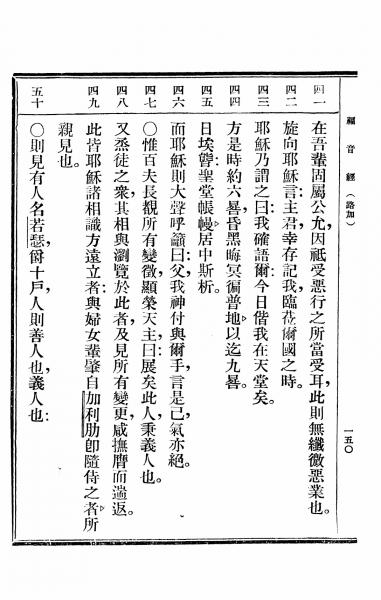 福音經（路加） 一五〇
四一 在吾輩固屬公允，因祇受惡行之所當受耳，此則無纖微惡業也。
四二 旋向耶穌言：主君幸存記我，臨莅爾國之時。
四三 耶穌乃謂之曰：我確語爾：今日偕我在天堂矣。
四四 方是時約六晷，昏黑晦冥，徧普地以迄九晷。
四五 日埃瞢，聖堂帳幔居中斯析。
四六 而耶穌則大聲呼籲曰：父，我神付與爾手，言是已氣亦絕。
四七 〇惟百夫長覩所有變徵，顯榮天主，曰：展矣此人，秉義人也。
四八 又烝徒之衆，其相與瀏覽於此者，及見所有變更，咸撫膺而遄返。
四九 此皆耶穌諸相識，方遠立者：與婦女輩，肇自加利肋卽隨侍之者，所
親見也。
五十 〇則見有人名若瑟，爵十戶，人則善人也，義人也：